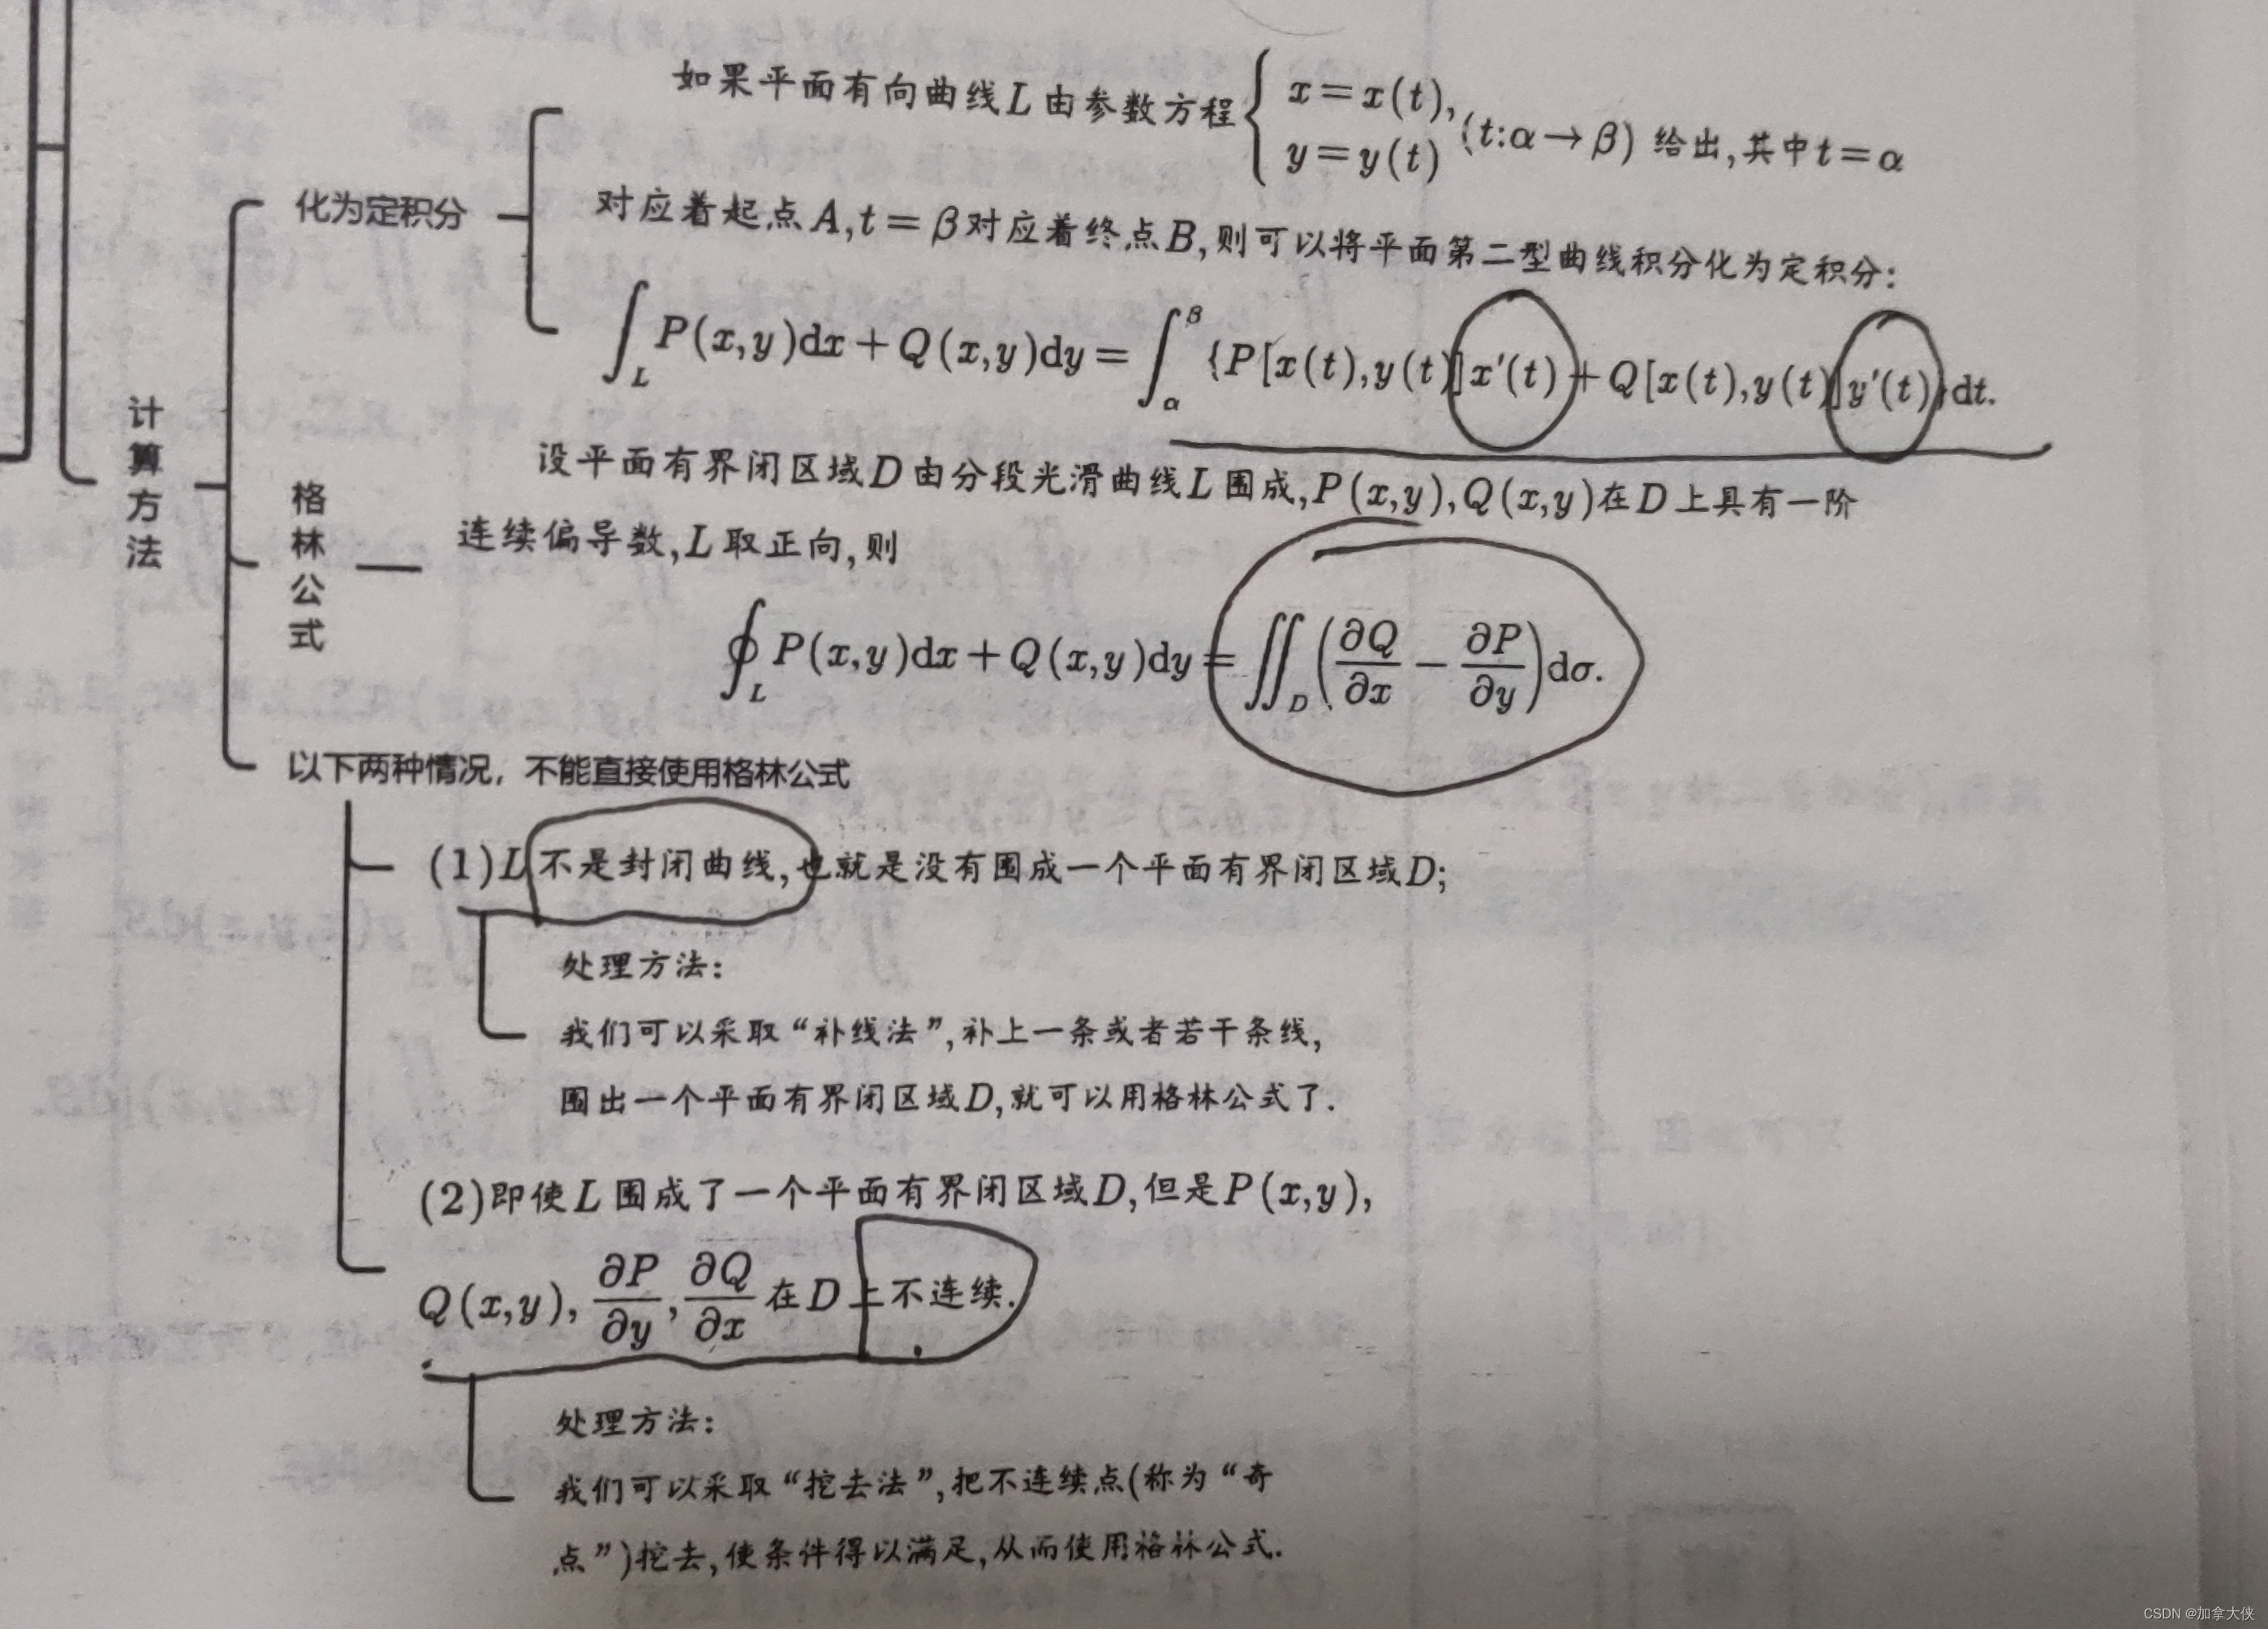 如果平面有向曲线L由参数方程{x=x(t), y=y(t) (t:α→β) 给出,其中t=α
对应着起点A,t=β对应着终点B,则可以将平面第二型曲线积分化为定积分:
化为定积分
∫_L P(x,y)dx+Q(x,y)dy=∫_α^β {P[x(t),y(t)]x′(t)+Q[x(t),y(t)]y′(t)}dt.
计算方法
设平面有界闭区域D由分段光滑曲线L围成,P(x,y),Q(x,y)在D上具有一阶
连续偏导数,L取正向,则
格林公式
∮_L P(x,y)dx+Q(x,y)dy=∬_D(∂Q/∂x−∂P/∂y)dσ.
以下两种情况，不能直接使用格林公式
(1)L不是封闭曲线,也就是没有围成一个平面有界闭区域D;
处理方法:
我们可以采取“补线法”,补上一条或者若干条线,
围出一个平面有界闭区域D,就可以用格林公式了.
(2)即使L围成了一个平面有界闭区域D,但是P(x,y),
Q(x,y),∂P/∂y,∂Q/∂x在D上不连续.
处理方法:
我们可以采取“挖去法”,把不连续点(称为“奇
点”)挖去,使条件得以满足,从而使用格林公式.
CSDN @加拿大侠